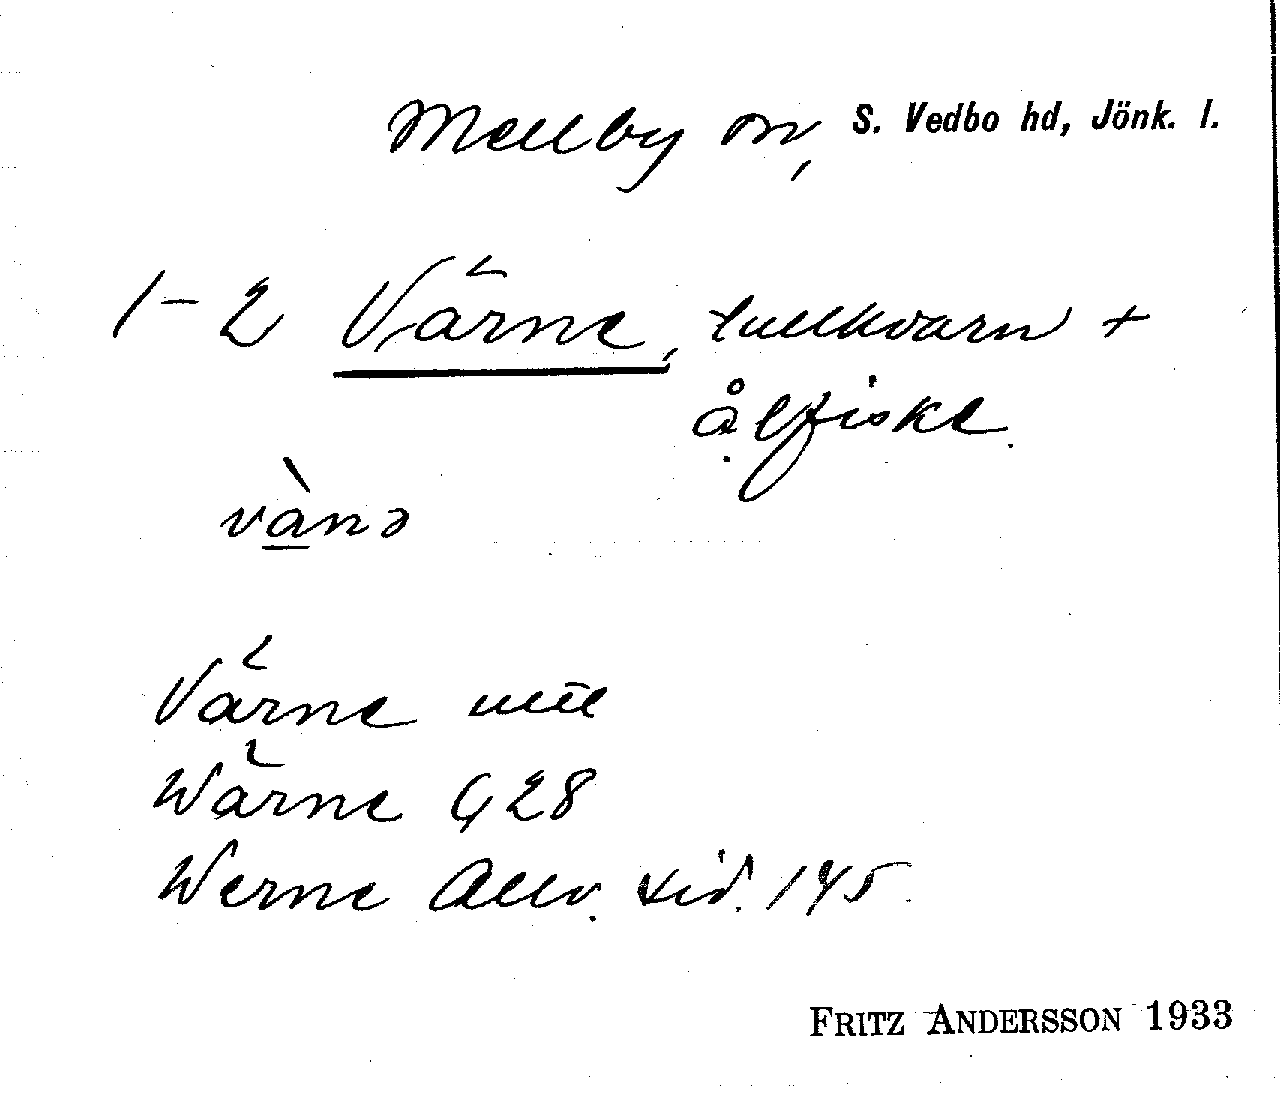 Mellby sn, S. Vedbo hd, Jönk. l.
1-2 Värne, tullkvarn +
ålfiske.
vànə
Värne
Wärne G, 28
Werne Allv. sid. 145.
FRITZ ANDERSSON 1933